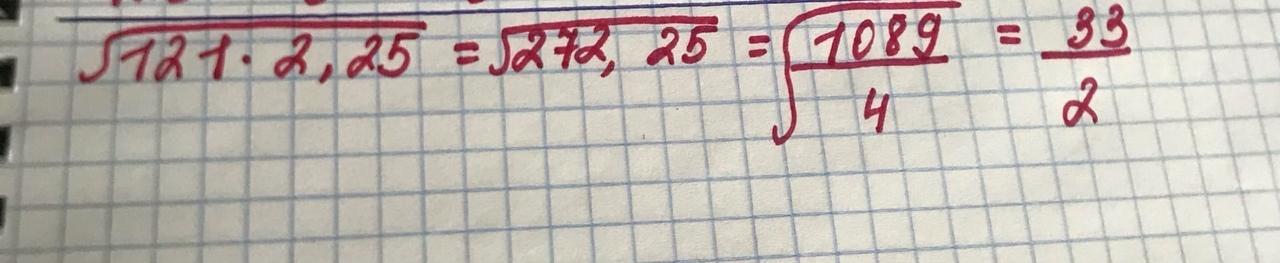 √121·2,25 = √272,25 = √1089/4 = 33/2